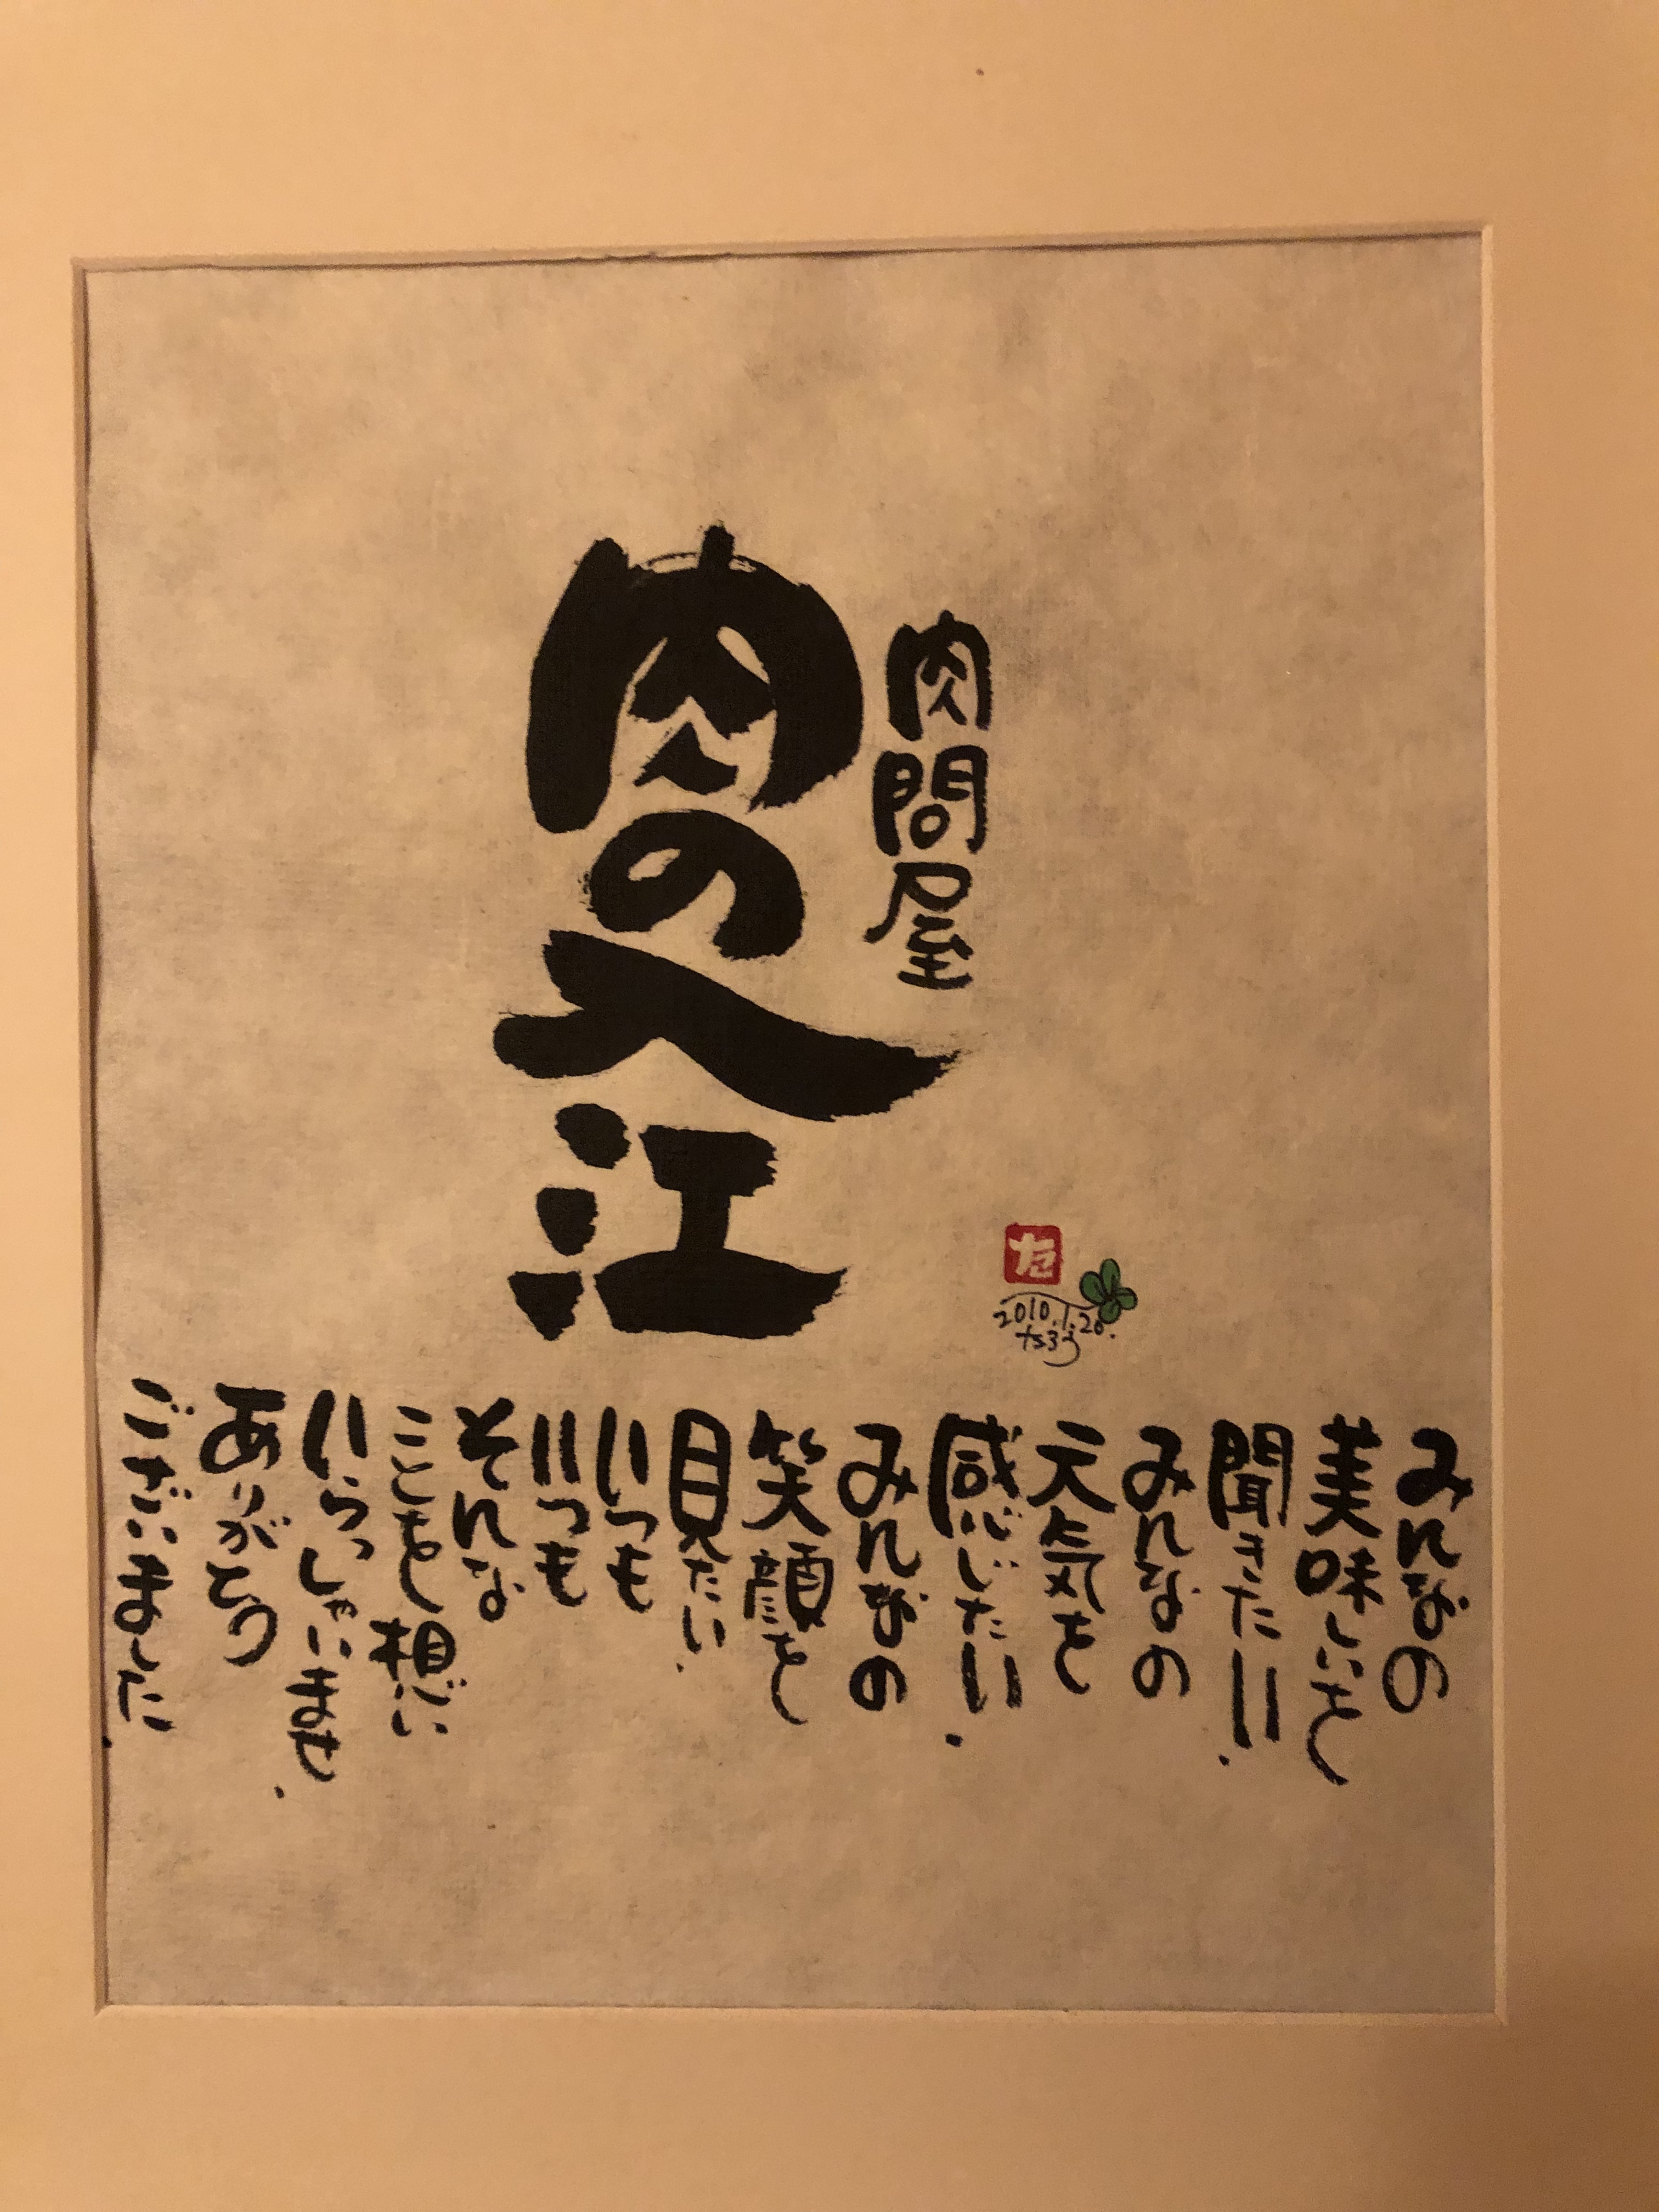 肉問屋
肉の入江
た
2010.1.20.
みんなの
美味しいを
聞きたい.
みんなの
元気を
感じたい.
みんなの
笑顔を
見たい.
いつも
いつも
そんな
ことを想い
いらっしゃいませ.
ありがとう
ございました.